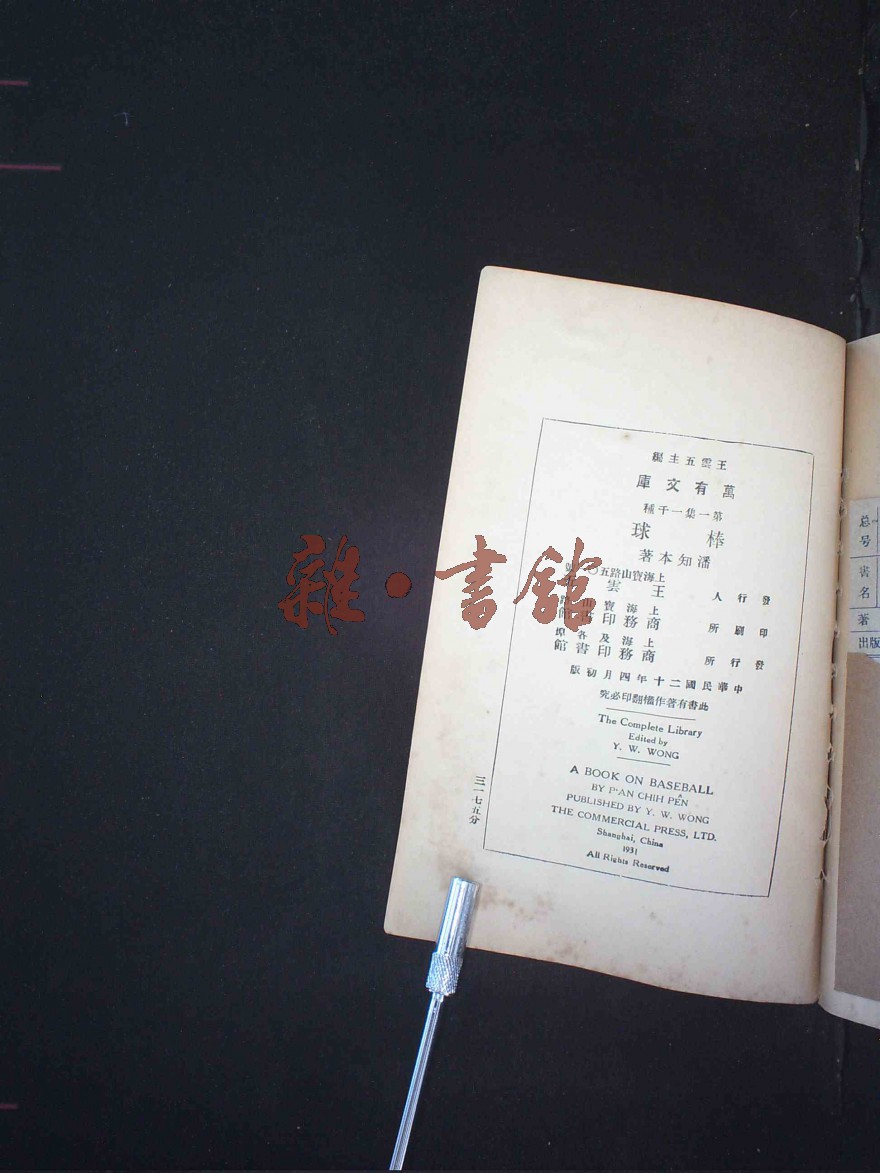 王雲五主編
萬有文庫
第一集一千種
棒球
潘知本著
上海寶山路五〇
發行人 王雲五
上海寶山路
印刷所 商務印書館
上海及各埠
發行所 商務印書館
中華民國二十年四月初版
此書有著作權翻印必究
The Complete Library
Edited by
Y. W. WONG
A BOOK ON BASEBALL
BY P'AN CHIH PÊN
PUBLISHED BY Y. W. WONG
THE COMMERCIAL PRESS, LTD.
Shanghai, China
1931
All Rights Reserved
三一七五分
雜·書館
总号
書名
著
出版